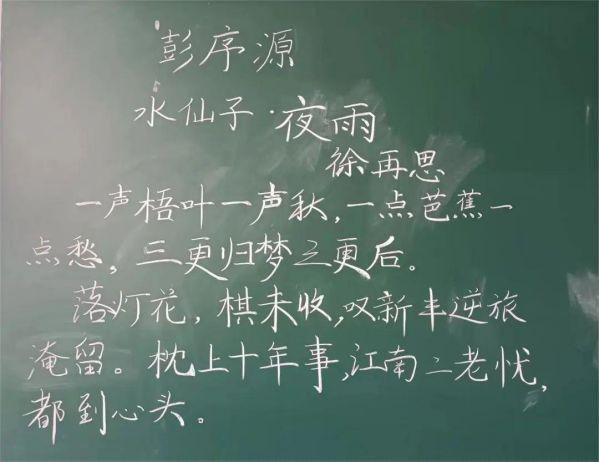 彭序源
水仙子·夜雨
徐再思
一声梧叶一声秋，一点芭蕉一
点愁，三更归梦三更后。
落灯花，棋未收，叹新丰逆旅
淹留。枕上十年事，江南二老忧，
都到心头。